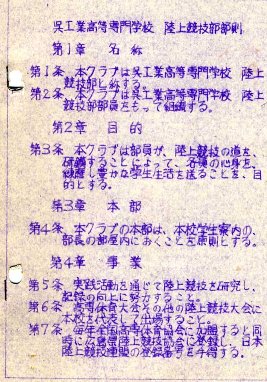 呉工業高等専門学校 陸上競技部部則
第1章 名称
第1条 本クラブは呉工業高等専門学校 陸上
競技部と称する。
第2条 本クラブは呉工業高等専門学校 陸上
競技部部員をもって組織する。
第2章 目的
第3条 本クラブは部員が、陸上競技の道を、
研鑽することによって、各員の心身を、
鍛錬し豊かな学生生活を送ることを、目
的とする。
第3章 本部
第4条 本クラブの本部は、本校学生案内の、
部長の部屋内におくことを原則とする。
第4章 事業
第5条 実践活動を通じて陸上競技を研究し、
記録の向上に努力すること。
第6条 高専体育大会その他の陸上競技大会に
本校を代表して出場すること。
第7条 毎年全国高専体育協会に加盟すると同
時に広島県陸上競技協会に登録し、日本
陸上競技連盟の登録番号を手得する。